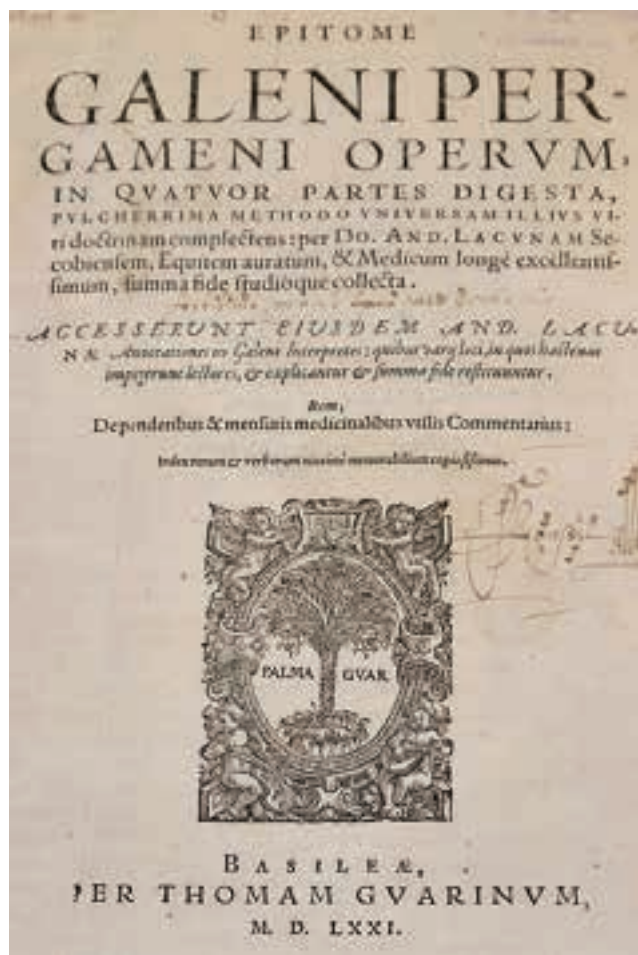 EPITOME
GALENI PER-
GAMENI OPERVM,
IN QVATVOR PARTES DIGESTA,
PVLCHERRIMA METHODO VNIVERSAM ILLIVS VI-
ri doctrinam complectens: per DO. AND. LACVNAM Se-
cobiensem, Equitem auratum, & Medicum longè excellentis-
simum, summa fide studioque collecta.
ACCESSERVNT EIVSDEM AND. LACV-
NÆ Annotationes in Galeni Interpretes: quibus varij loci, in quos hactenus
impegerunt lectores, & explicantur & summa fide restituuntur.
Item,
De ponderibus & mensuris medicinalibus vtilis Commentarius:
Index rerum & verborum memorabilium copiosissimus.
PALMA GVAR.
BASILEÆ,
PER THOMAM GVARINVM,
M. D. LXXI.